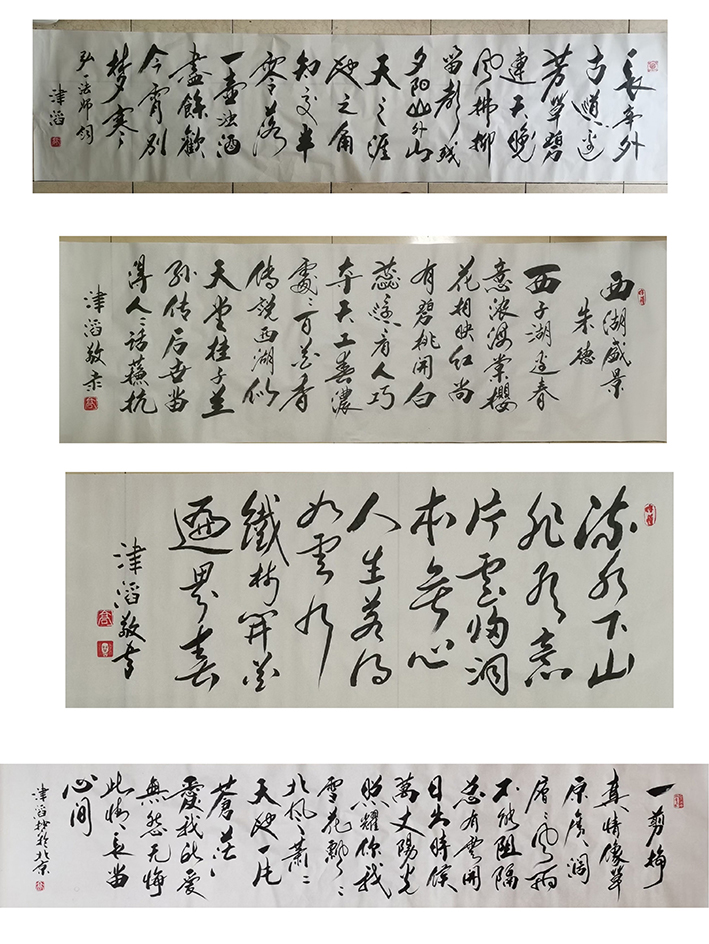 長亭外
古道边
芳草碧
連天晚
風拂柳
笛聲残
夕阳山外山
天之涯
地之角
知交半
零落
一壶浊酒
盡餘歡
今宵别
梦寒
弘一法师词
津滔
西湖盛景
朱德
西子湖边春
意浓海棠櫻
花相映红尚
有碧桃开白
蕊遂看人巧
夺天工春濃
處々百花香
传说西湖似
天堂桂子兰
孙传后世留
得人々话蘇杭
津滔敬录
流水下山
非有意
片雲归洞
本無心
人生若得
如雲水
鐵树开花
遍界春
津滔敬书
一剪梅
真情像草
原廣阔
層々風雨
不能阻隔
总有雲開
日出時候
萬丈陽光
照耀你我
雪花飘々
北風萧々
天地一片
蒼茫
愛我所爱
無怨无悔
此情長留
心间
津滔抄於北京